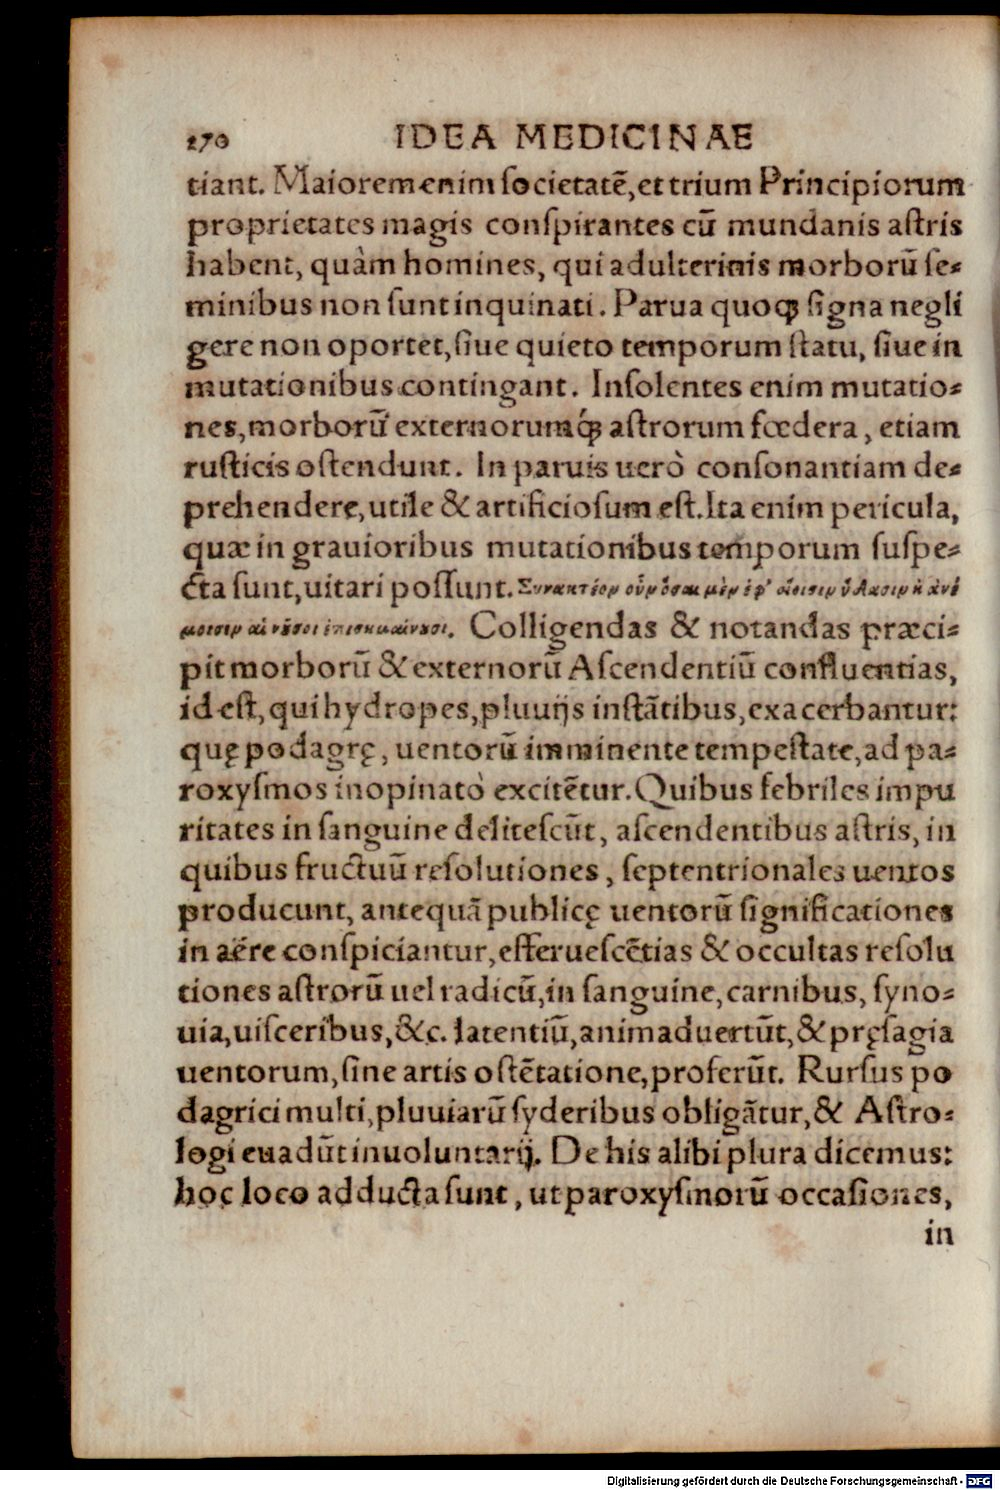 270 IDEA MEDICINAE
tiant. Maiorem enim societatē, et trium Principiorum
proprietates magis conspirantes cū mundanis astris
habent, quàm homines, qui adulterinis morborū se-
minibus non sunt inquinati. Parua quoq; signa negli
gere non oportet, siue quieto temporum statu, siue in
mutationibus contingant. Insolentes enim mutatio-
nes, morborū externorumq́; astrorum fœdera, etiam
rusticis ostendunt. In paruis uerò consonantiam de-
prehendere, utile & artificiosum est. Ita enim pericula,
quæ in grauioribus mutationibus temporum suspe-
cta sunt, uitari possunt. Συνακτέον οὖν ὅσαι μὲν ἐφ'
αἱ νῦσοι Colligendas & notandas præci-
pit morborū & externorū Ascendentiū confluentias,
id est, qui hydropes, pluuijs instātibus, exacerbantur:
quę podagrę, uentorū imminente tempestate, ad pa-
roxysmos inopinatò excitētur. Quibus febriles impu
ritates in sanguine delitescūt, ascendentibus astris, in
quibus fructuū resolutiones, septentrionales uentos
producunt, antequā publicę uentorū significationes
in aëre conspiciantur, efferuescētias & occultas resolu
tiones astrorū uel radicū, in sanguine, carnibus, syno-
uia, uisceribus, &c. latentiū, animaduertūt, & pręsagia
uentorum, sine artis ostētatione, proferūt. Rursus po
dagrici multi, pluuiarū syderibus obligātur, & Astro-
logi euadūt inuoluntarij. De his alibi plura dicemus:
hoc loco adducta sunt, ut paroxysmorū occasiones,
in
Digitalisierung gefördert durch die Deutsche Forschungsgemeinschaft - DFG